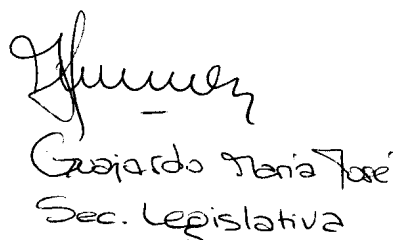 Guajardo María José
Sec. Legislativa